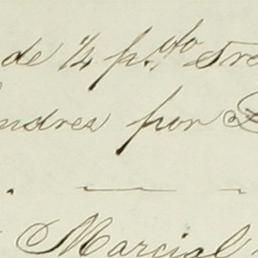 de ¼ p.to Tre
ndres por
Marcial